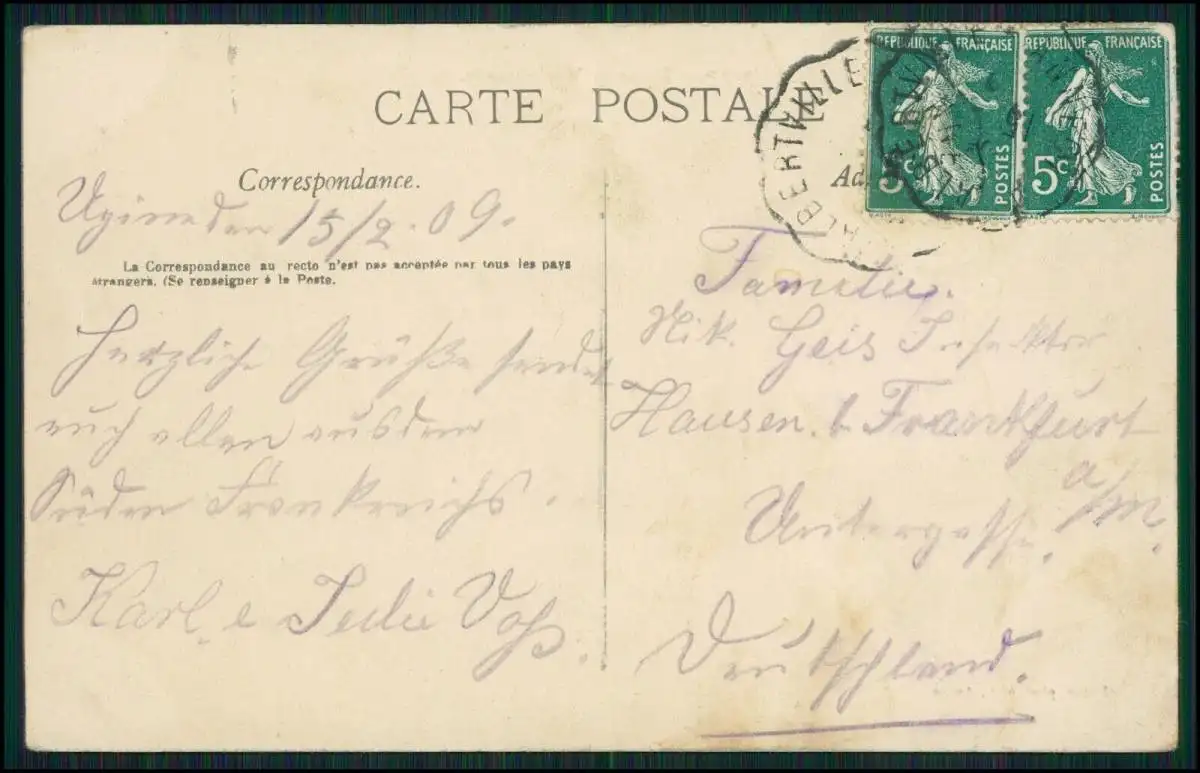 CARTE POSTALE
Correspondance.
Ugine den 15/2. 09.
La Correspondance au recto n'est pas acceptée par tous les pays
étrangers. (Se renseigner à la Poste.
Herzliche Grüße sendet
euch allen aus dem
Süden Frankreichs.
Karl e Voß.
RÉPUBLIQUE FRANÇAISE
5c POSTES
RÉPUBLIQUE FRANÇAISE
5c POSTES
ALBERTVILLE
ALBERTVILLE
Ad
Familie.
Nik. Geis Inspektor
Hausen. b Frankfurt
a/M.
Untergasse.
Deutschland.